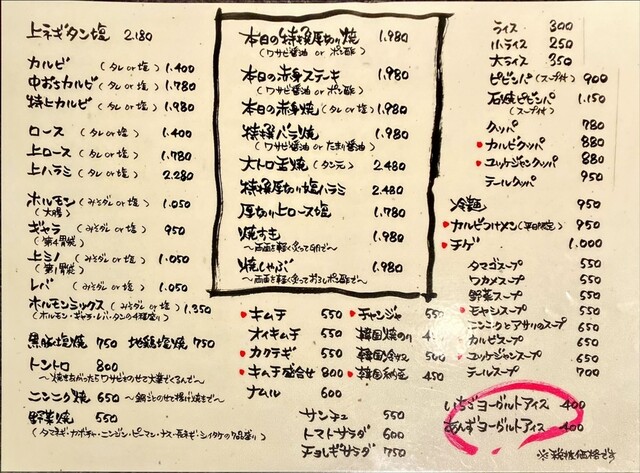 上ネギタン塩 2.180
カルビ (タレor塩) 1.400
中おちカルビ (タレor塩) 1.780
特上カルビ (タレor塩) 1.980
ロース (タレor塩) 1.400
上ロース (タレor塩) 1.780
上ハラミ (タレor塩) 2.280
ホルモン (みそダレor塩) 1.050
(大腸)
ギャラ (みそダレor塩) 950
(第4胃袋)
上ミノ (みそダレor塩) 1.050
(第1胃袋)
レバ (みそダレor塩) 1.050
ホルモンミックス (みそダレor塩) 1.350
(ホルモン・ギャラ・レバ・タンの4種盛り)
黒豚塩焼 750 地鶏塩焼 750
トントロ 800
〜焼きあがったらワサビをのせて大葉でくるんで〜
ニンニク焼 650 〜鍋ごとのせて揚げ焼きで〜
野菜焼 550
(タマネギ・カボチャ・ニンジン・ピーマン・ナス・長ネギ・シイタケの7品盛り)
本日の特撰厚切り焼 1.980
(ワサビ醤油 or ポン酢)
本日の赤身ステーキ 1.980
(ワサビ醤油 or ポン酢)
本日の赤身焼 (タレor塩) 1.980
特撰バラ焼 1.980
(ワサビ醤油 or たまり醤油)
大トロ玉焼 (タン元) 2.480
特撰厚切り塩ハラミ 2.480
厚切り上ロース塩 1.780
焼すき 1.980
〜両面を軽く炙って卵で〜
焼しゃぶ 1.980
〜両面を軽く炙っておろしポン酢で〜
キムチ 550
オイキムチ 550
カクテギ 550
キムチ盛合せ 800
ナムル 600
チャンジャ 550
韓国焼のり 450
韓国冷奴 500
韓国納豆 450
サンチュ 550
トマトサラダ 600
チョレギサラダ 750
ライス 300
小ライス 250
大ライス 350
ビビンバ (スープ付) 900
石焼ビビンバ 1.150
(スープ付)
クッパ 780
カルビクッパ 880
ユッケジャンクッパ 880
テールクッパ 950
冷麺 950
カルビつけメン (平日限定) 950
チゲ 1.000
タマゴスープ 550
ワカメスープ 550
野菜スープ 550
モヤシスープ 550
ニンニクとアサリのスープ 650
カルビスープ 650
ユッケジャンスープ 650
テールスープ 700
いちごヨーグルトアイス 400
あんずヨーグルトアイス 400
※税抜価格です